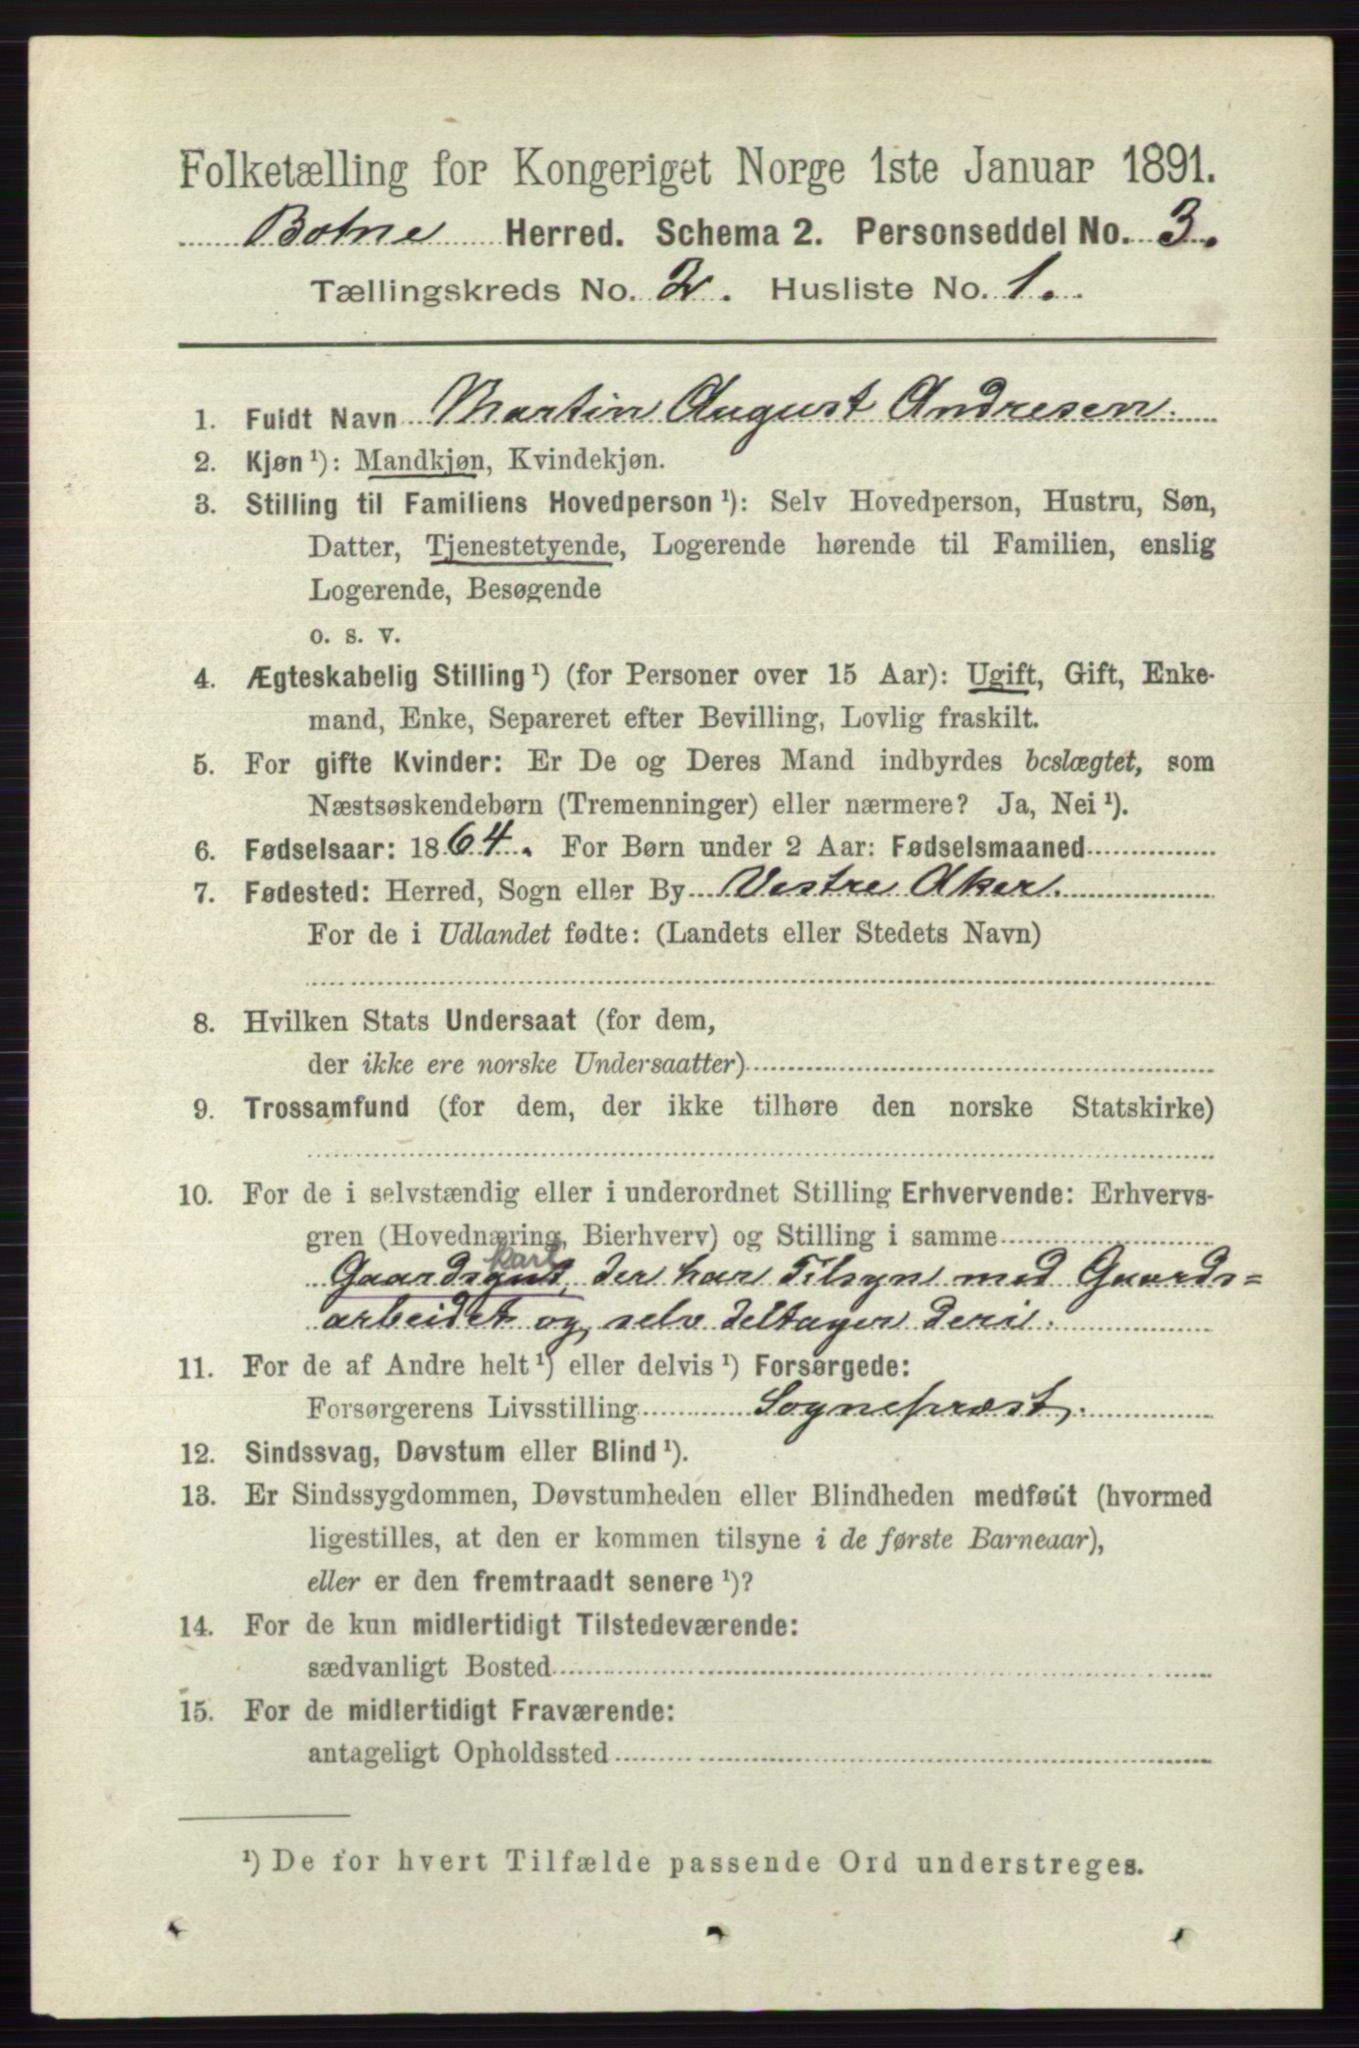 Folketælling for Kongeriget Norge 1ste Januar 1891.
Botne Herred. Schema 2. Personseddel No. 3.
Tællingskreds No. 2. Husliste No. 1.
1. Fuldt Navn Martin August Andresen.
2. Kjøn ¹): Mandkjøn, Kvindekjøn.
3. Stilling til Familiens Hovedperson ¹): Selv Hovedperson, Hustru, Søn,
Datter, Tjenestetyende, Logerende hørende til Familien, enslig
Logerende, Besøgende
o. s. v.
4. Ægteskabelig Stilling ¹) (for Personer over 15 Aar): Ugift, Gift, Enke-
mand, Enke, Separeret efter Bevilling, Lovlig fraskilt.
5. For gifte Kvinder: Er De og Deres Mand indbyrdes beslægtet, som
Næstsøskendebørn (Tremenninger) eller nærmere? Ja, Nei ¹).
6. Fødselsaar: 1864. For Børn under 2 Aar: Fødselsmaaned
7. Fødested: Herred, Sogn eller By Vestre Aker.
For de i Udlandet fødte: (Landets eller Stedets Navn)
8. Hvilken Stats Undersaat (for dem,
der ikke ere norske Undersaatter)
9. Trossamfund (for dem, der ikke tilhøre den norske Statskirke)
10. For de i selvstændig eller i underordnet Stilling Erhvervende: Erhvervs-
gren (Hovednæring, Bierhverv) og Stilling i samme
karl
Gaardsgut, der har Tilsyn med Gaards-
arbeidet og selv deltager deri.
11. For de af Andre helt ¹) eller delvis ¹) Forsørgede:
Forsørgerens Livsstilling Sognepræst.
12. Sindssvag, Døvstum eller Blind ¹).
13. Er Sindssygdommen, Døvstumheden eller Blindheden medfødt (hvormed
ligestilles, at den er kommen tilsyne i de første Barneaar),
eller er den fremtraadt senere ¹)?
14. For de kun midlertidigt Tilstedeværende:
sædvanligt Bosted
15. For de midlertidigt Fraværende:
antageligt Opholdssted
¹) De for hvert Tilfælde passende Ord understreges.